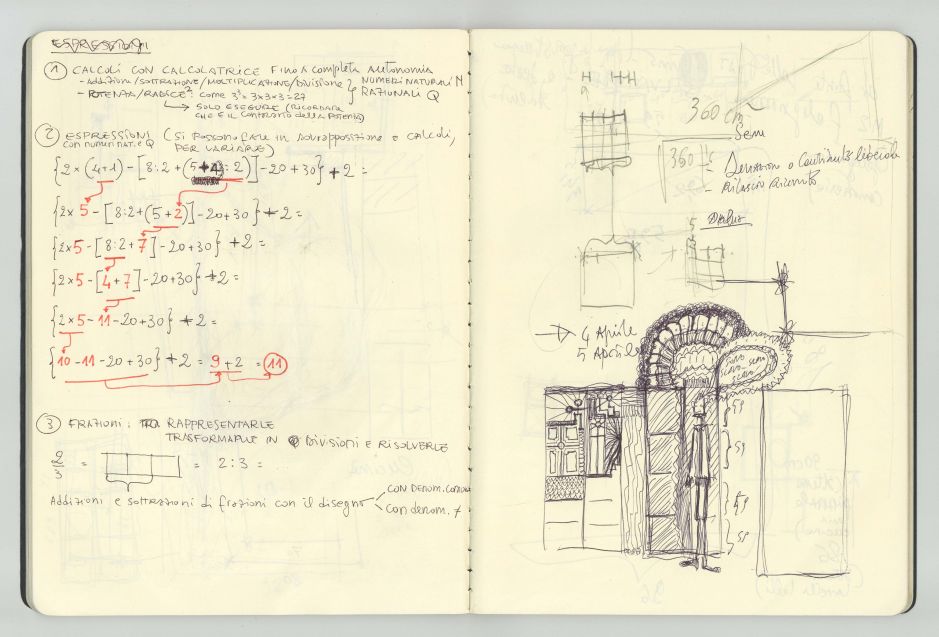 ESPRESSIONI
1 CALCOLI CON CALCOLATRICE FINO A completa autonomia
- Addizioni/sottrazione/moltiplicazione/divisione } NUMERI NATURALI N
- POTENZA/RADICE²: come 3³= 3x3x3=27 RAZIONALI Q
→ SOLO ESEGUIRE (RICORDARE
CHE È IL CONTRARIO della POTENZA)
2 ESPRESSIONI (SI POSSONO FARE IN sovrapposizione a CALCOLI,
con numeri nat. e Q PER VARIARE)
{2 x (4+1) - [8:2 + (5+4:2)] - 20 + 30} + 2 =
{2x 5 - [8:2+(5+2)] - 20+30} + 2 =
{2x5 - [8:2+7] - 20+30} + 2 =
{2x5 - [4+7] - 20+30} + 2 =
{2x5 - 11 - 20+30} + 2 =
{10 - 11 - 20 + 30} + 2 = 9 + 2 = 11
3 FRAZIONI: RAPPRESENTARLE
TRASFORMARLE IN DIVISIONI E RISOLVERLE
2/3 = = 2:3 =
Addizioni e sottrazioni di frazioni con il disegno
CON DENOM. COMUNE
Con denom. ≠
360
Semi
360
- Rilascio
5
→ 4 Aprile
5 Aprile
59
59
59
59